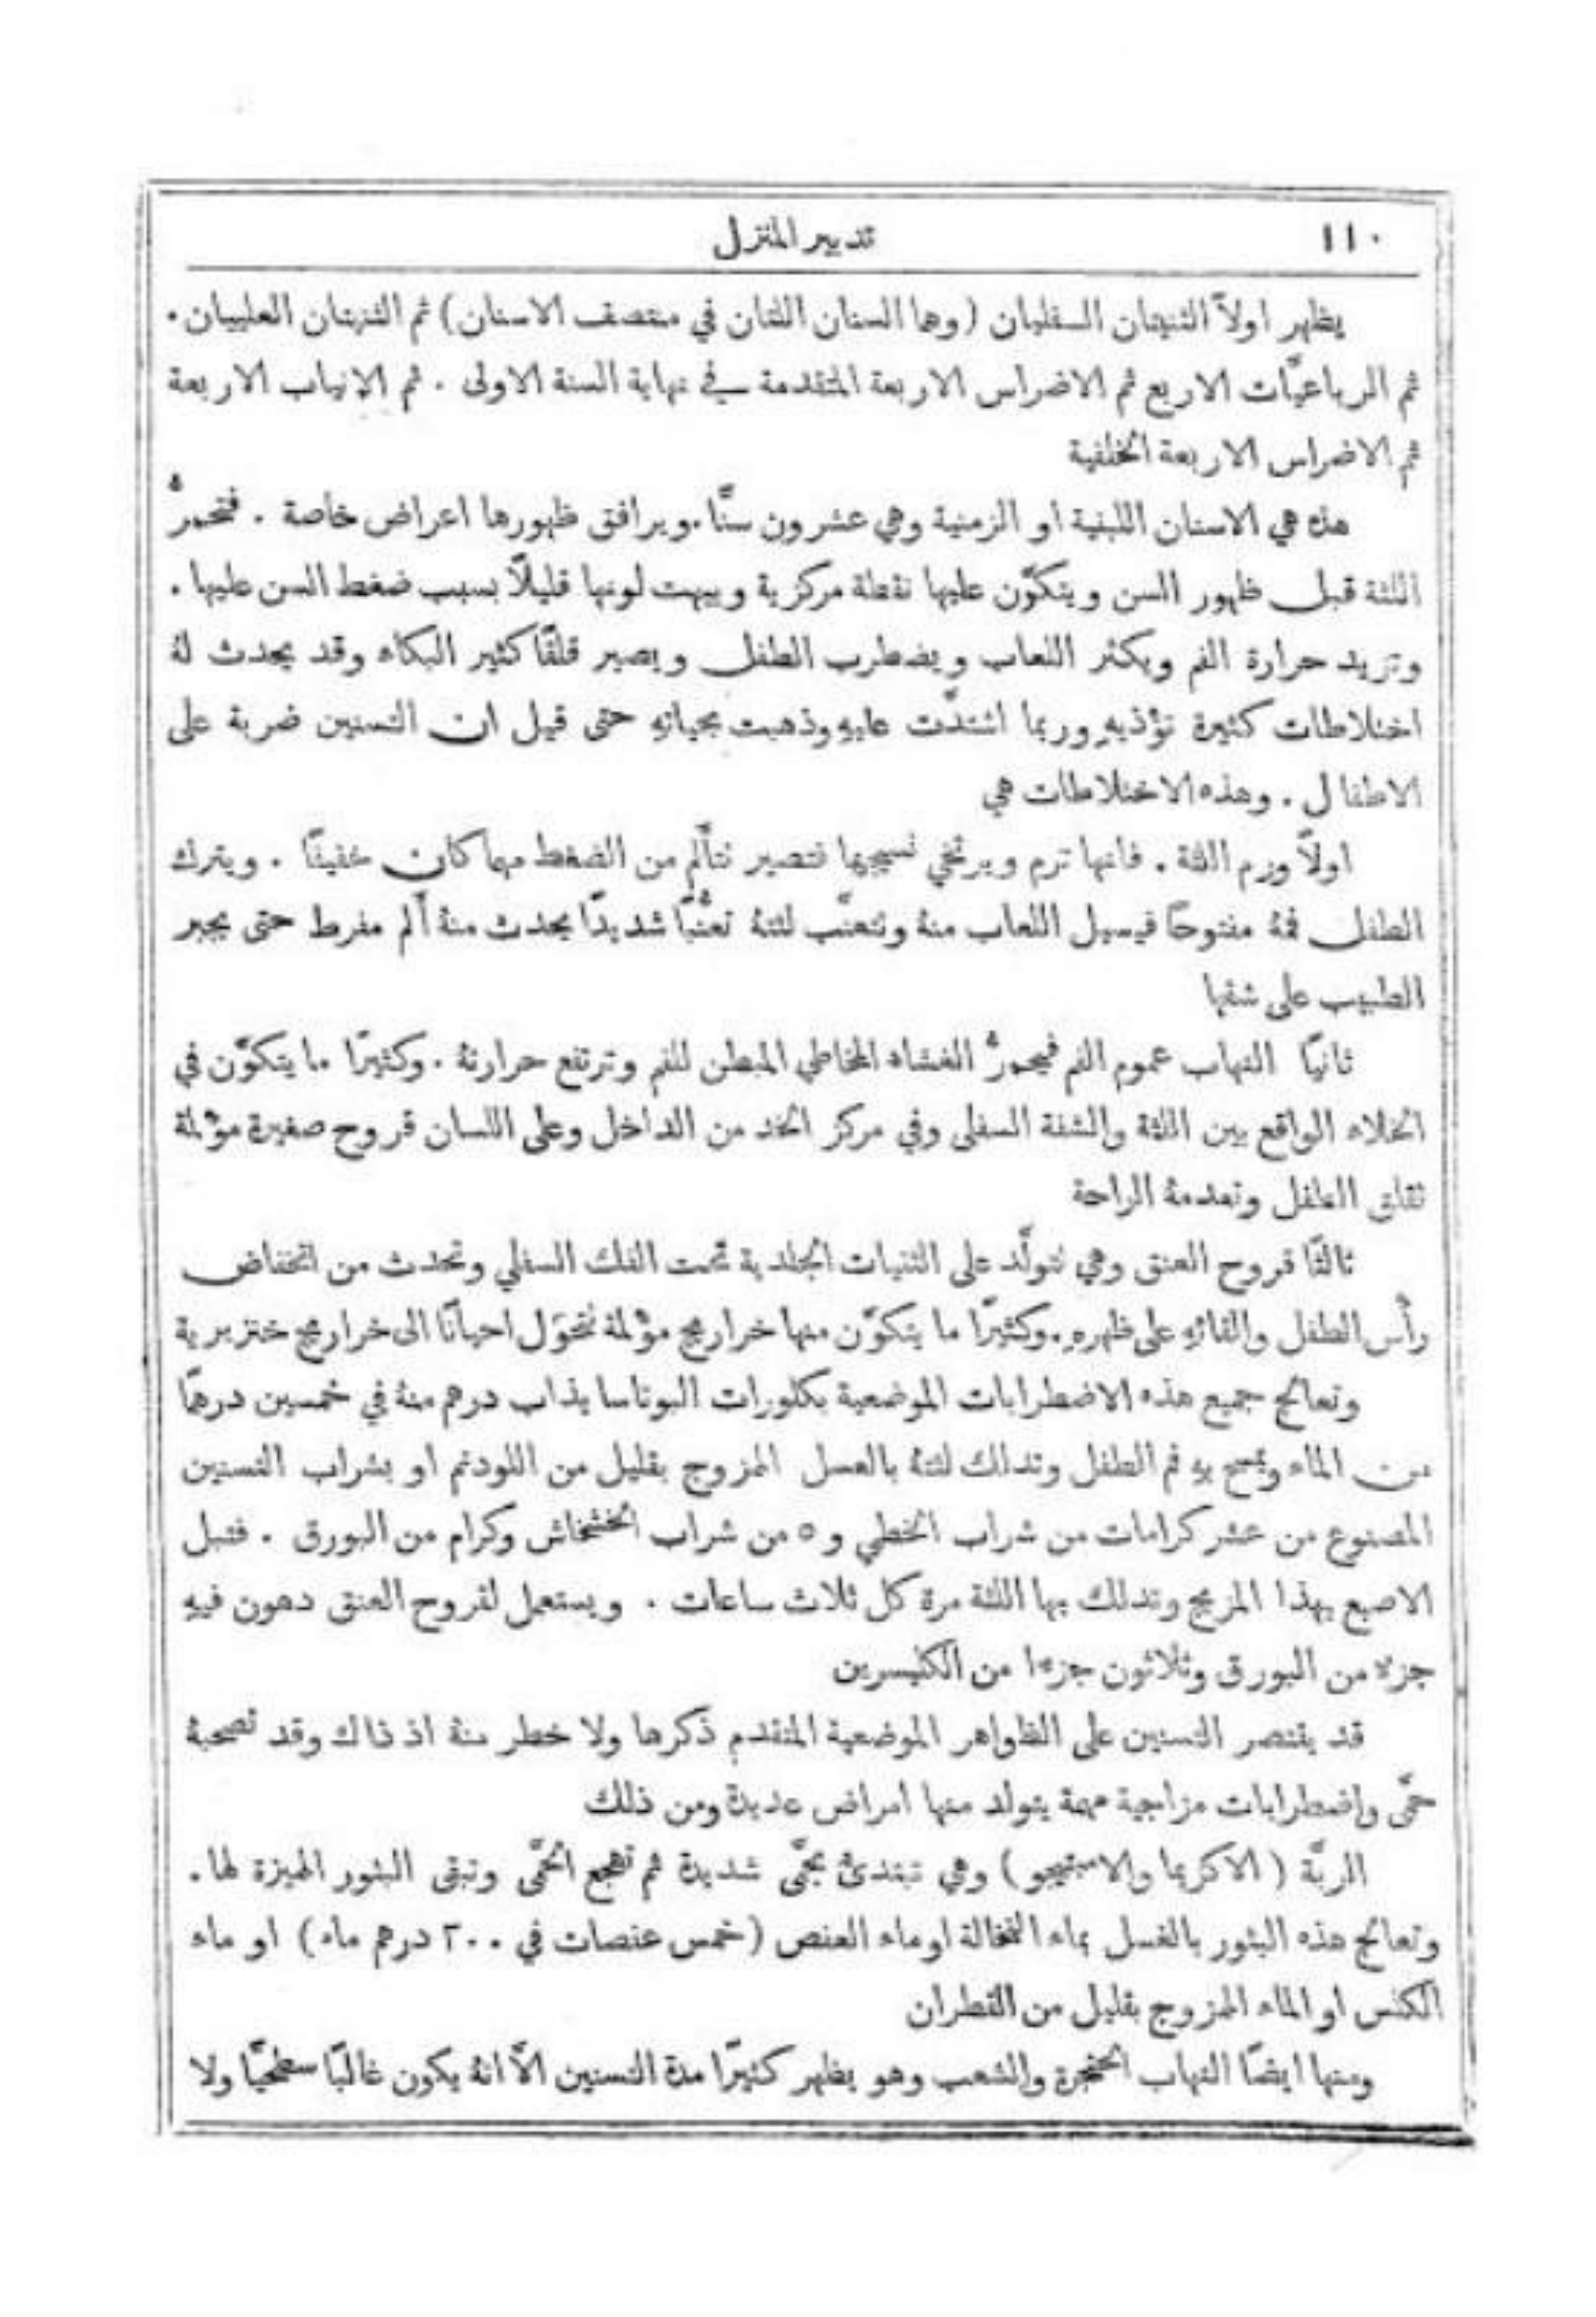 ١١٠
تدبير المنزل
يظهر اولاً الثنيتان السفليان (وهما السنان اللتان في منتصف الاسنان) ثم الثنيتان العلييان.
ثم الرباعيّات الاربع ثم الاضراس الاربعة المتقدمة في نهاية السنة الاولى . ثم الانياب الاربعة
ثم الاضراس الاربعة الخلفية
هذه هي الاسنان اللبنية او الزمنية وهي عشرون سنًّا. ويرافق ظهورها اعراض خاصة . فتحمرُّ
اللثة قبل ظهور السن ويتكوَّن عليها نقطة مركزية ويبهت لونها قليلًا بسبب ضغط السن عليها .
وتزيد حرارة الفم ويكثر اللعاب ويضطرب الطفل ويصير قلقًا كثير البكاء وقد يحدث لهُ
اختلاطات كثيرة تؤذيهِ وربما اشتدَّت عليهِ وذهبت بحياتهِ حتى قيل ان التسنين ضربة على
الاطفال . وهذه الاختلاطات هي
اولاً ورم اللثة . فانها ترم ويرتخي نسيجها فتصير تتأَلَّم من الضغط مهما كان خفيفًا . ويترك
الطفل فمهُ مفتوحًا فيسيل اللعاب منهُ وتتعنَّب لثتهُ تعنُّبًا شديدًا يحدث منهُ أَلم مفرط حتى يجبر
الطبيب على شقها
ثانيًا التهاب عموم الفم فيحمرُّ الغشاء المخاطي المبطن للفم وترتفع حرارتهُ . وكثيرًا ما يتكوَّن في
الخلاء الواقع بين اللثة والشفة السفلى وفي مركز الخد من الداخل وعلى اللسان قروح صغيرة مؤلمة
تقلق الطفل وتعدمهُ الراحة
ثالثًا قروح العنق وهي تتولَّد على الثنيات الجلدية تحت الفك السفلي وتحدث من انخفاض
رأس الطفل والقائهِ على ظهرهِ. وكثيرًا ما يتكوَّن منها خراريج مؤلمة تتحوَل احيانًا الى خراريج خنزيرية
وتعالج جميع هذه الاضطرابات الموضعية بكلورات البوتاسا يذاب درهم منهُ في خمسين درهمًا
من الماء ويمسح بهِ فم الطفل وتدلك لثتهُ بالعسل الممزوج بقليل من اللودنم او بشراب التسنين
المصنوع من عشر كرامات من شراب الخطي و ٥ من شراب الخشخاش وكرام من البورق . فتبل
الاصبع بهذا المزيج وتدلك بها اللثة مرة كل ثلاث ساعات . ويستعمل لقروح العنق دهون فيهِ
جزء من البورق وثلاثون جزءا من الكليسرين
قد يقتصر التسنين على الظواهر الموضعية المتقدم ذكرها ولا خطر منهُ اذ ذاك وقد تصحبهُ
حمَّى واضطرابات مزاجية مهمة يتولد منها امراض عديدة ومن ذلك
الربَّة (الاكزيما والامبتيجو) وهي تبتدئ بحمَّى شديدة ثم تهجع الحمَّى وتبقى البثور المميزة لها.
وتعالج هذه البثور بالغسل بماء النخالة او ماء العفص (خمس عفصات في ٢٠٠ درهم ماء) او ماء
الكلس او الماء الممزوج بقليل من القطران
ومنها ايضًا التهاب الحنجرة والشعب وهو يظهر كثيرًا مدة التسنين الاَّ انهُ يكون غالبًا سطحيًّا ولا